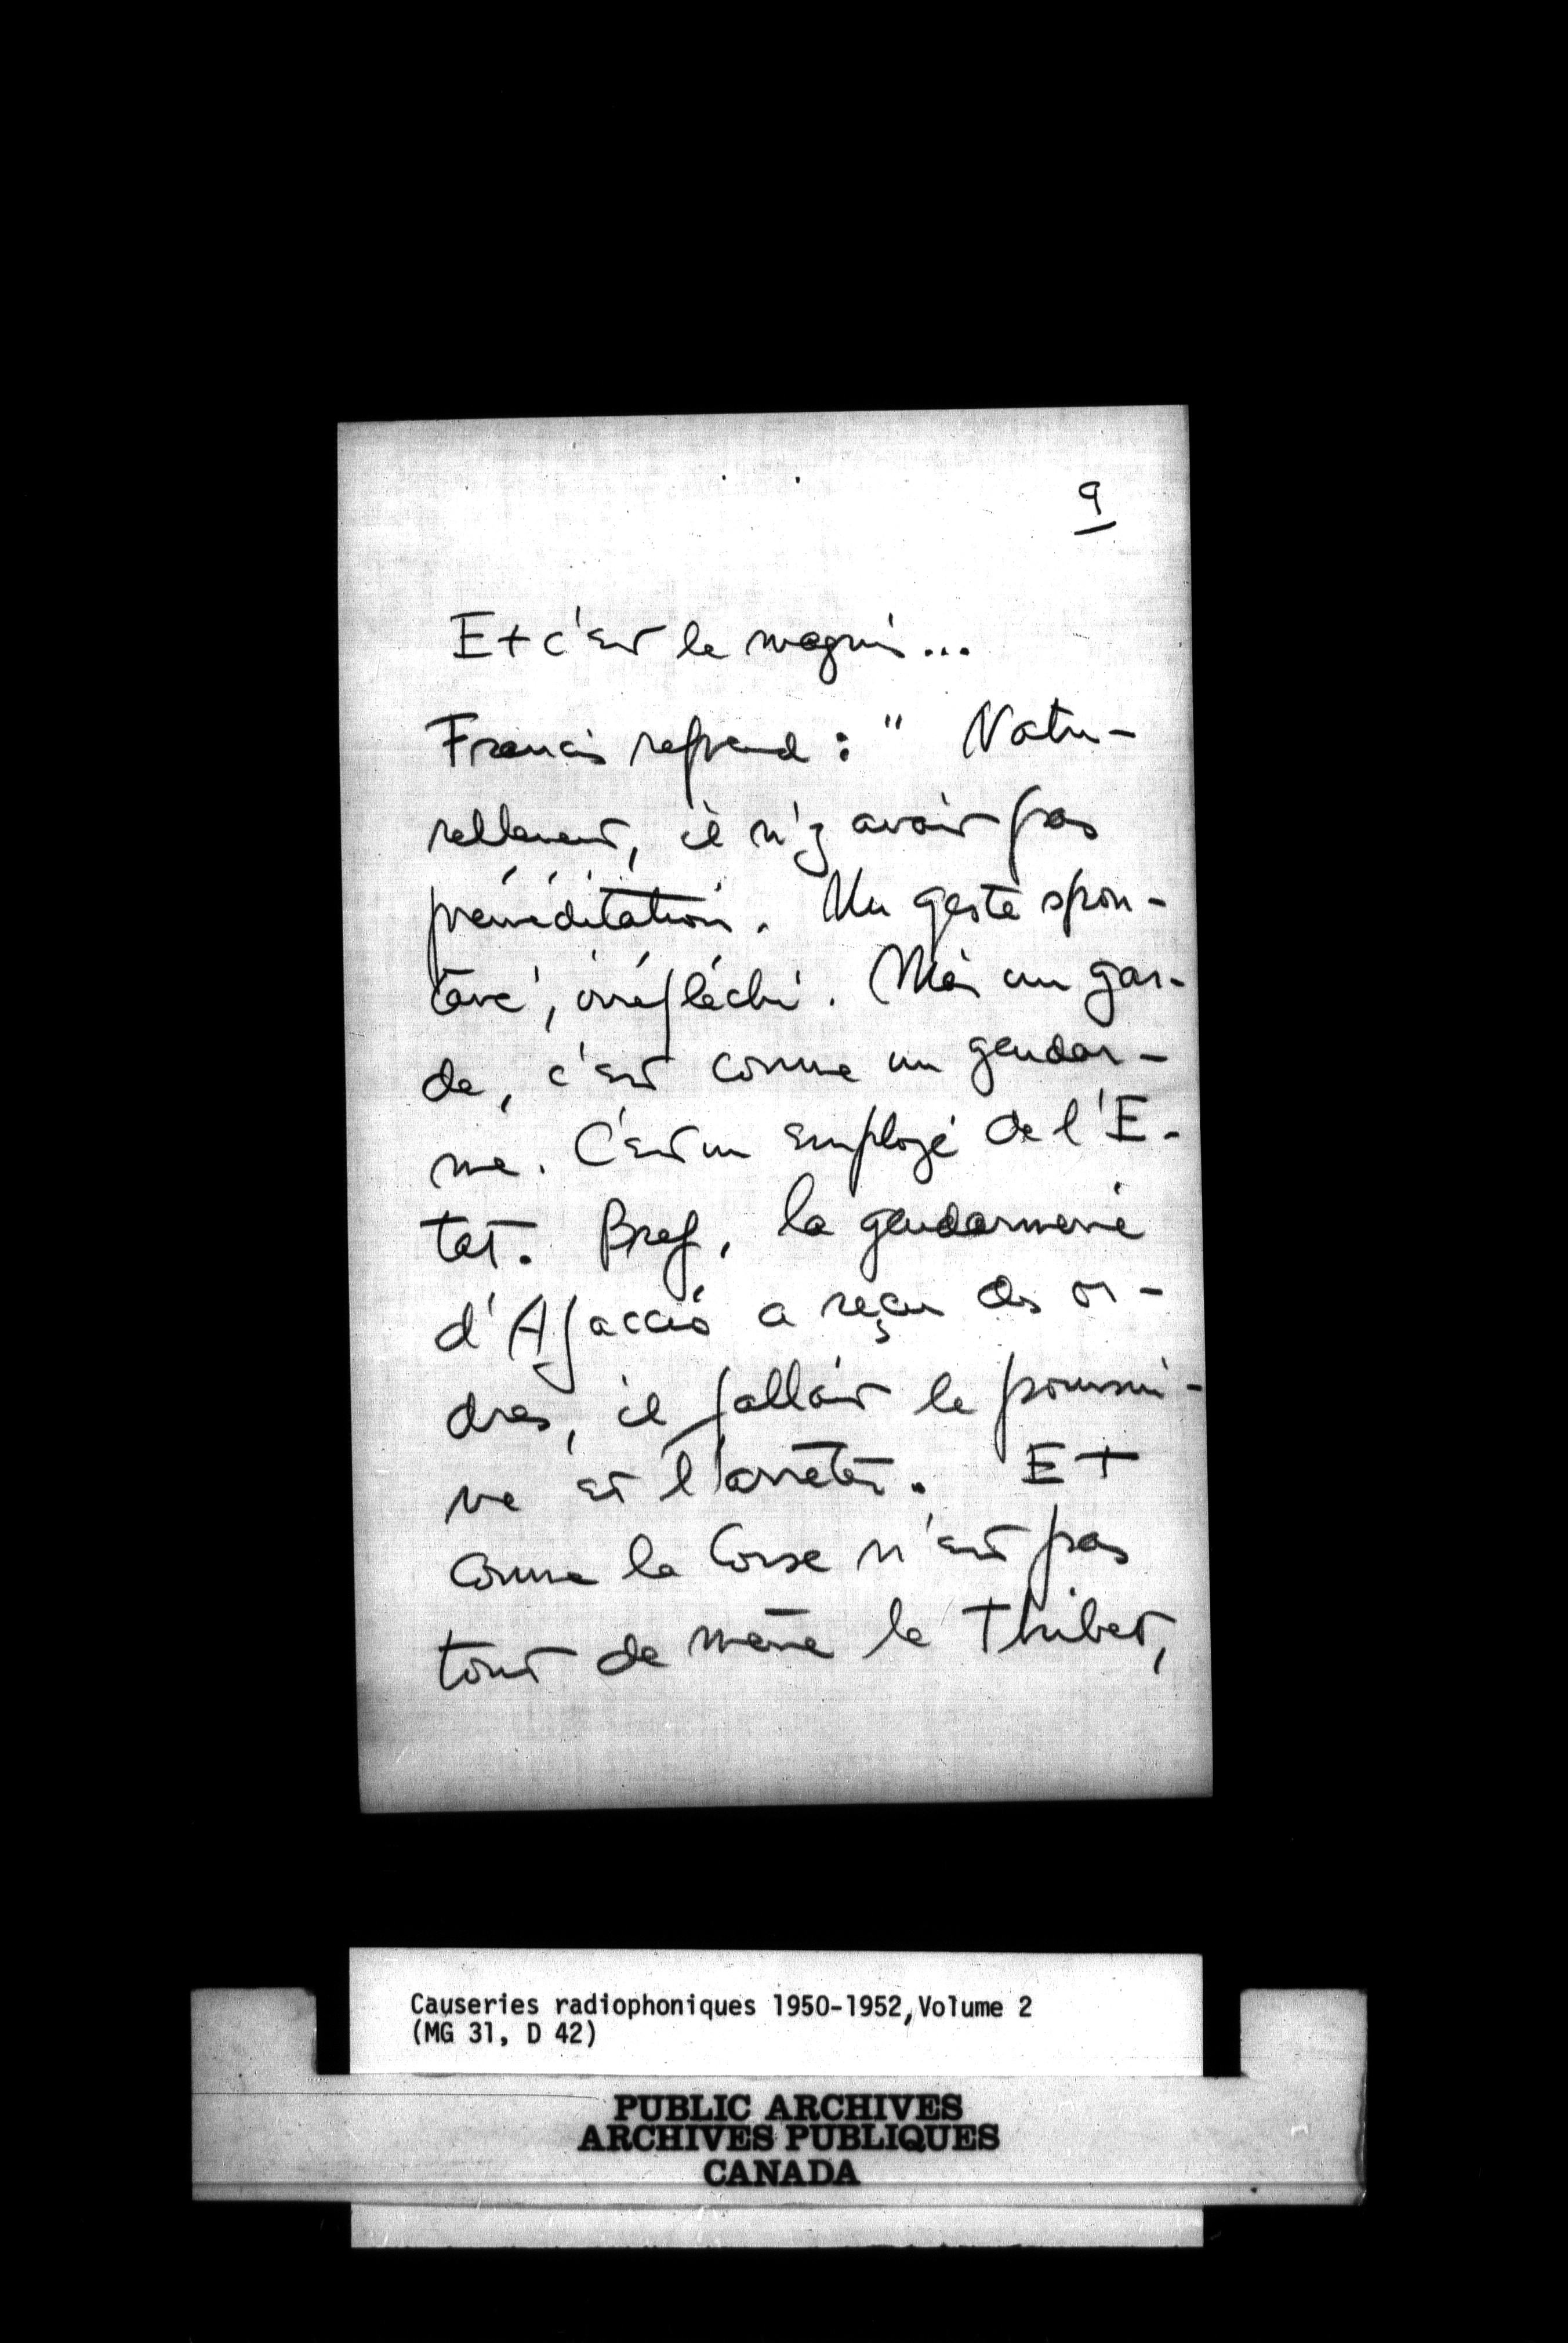 9
Et c'est le maquis...
Francis reprend : " Natu-
rellement, il n'y avait pas
préméditation. Un geste spon-
tané, irréfléchi. Mais un gar-
de, c'est comme un gendar-
me. C'est un employé de l'E-
tat. Bref, la gendarmerie
d'Ajaccio a reçu des or-
dres, il fallait le poursui-
vre et l'arrêter. Et
comme la Corse n'est pas
tout de même le Thibet,
Causeries radiophoniques 1950-1952, Volume 2
(MG 31, D 42)
PUBLIC ARCHIVES
ARCHIVES PUBLIQUES
CANADA